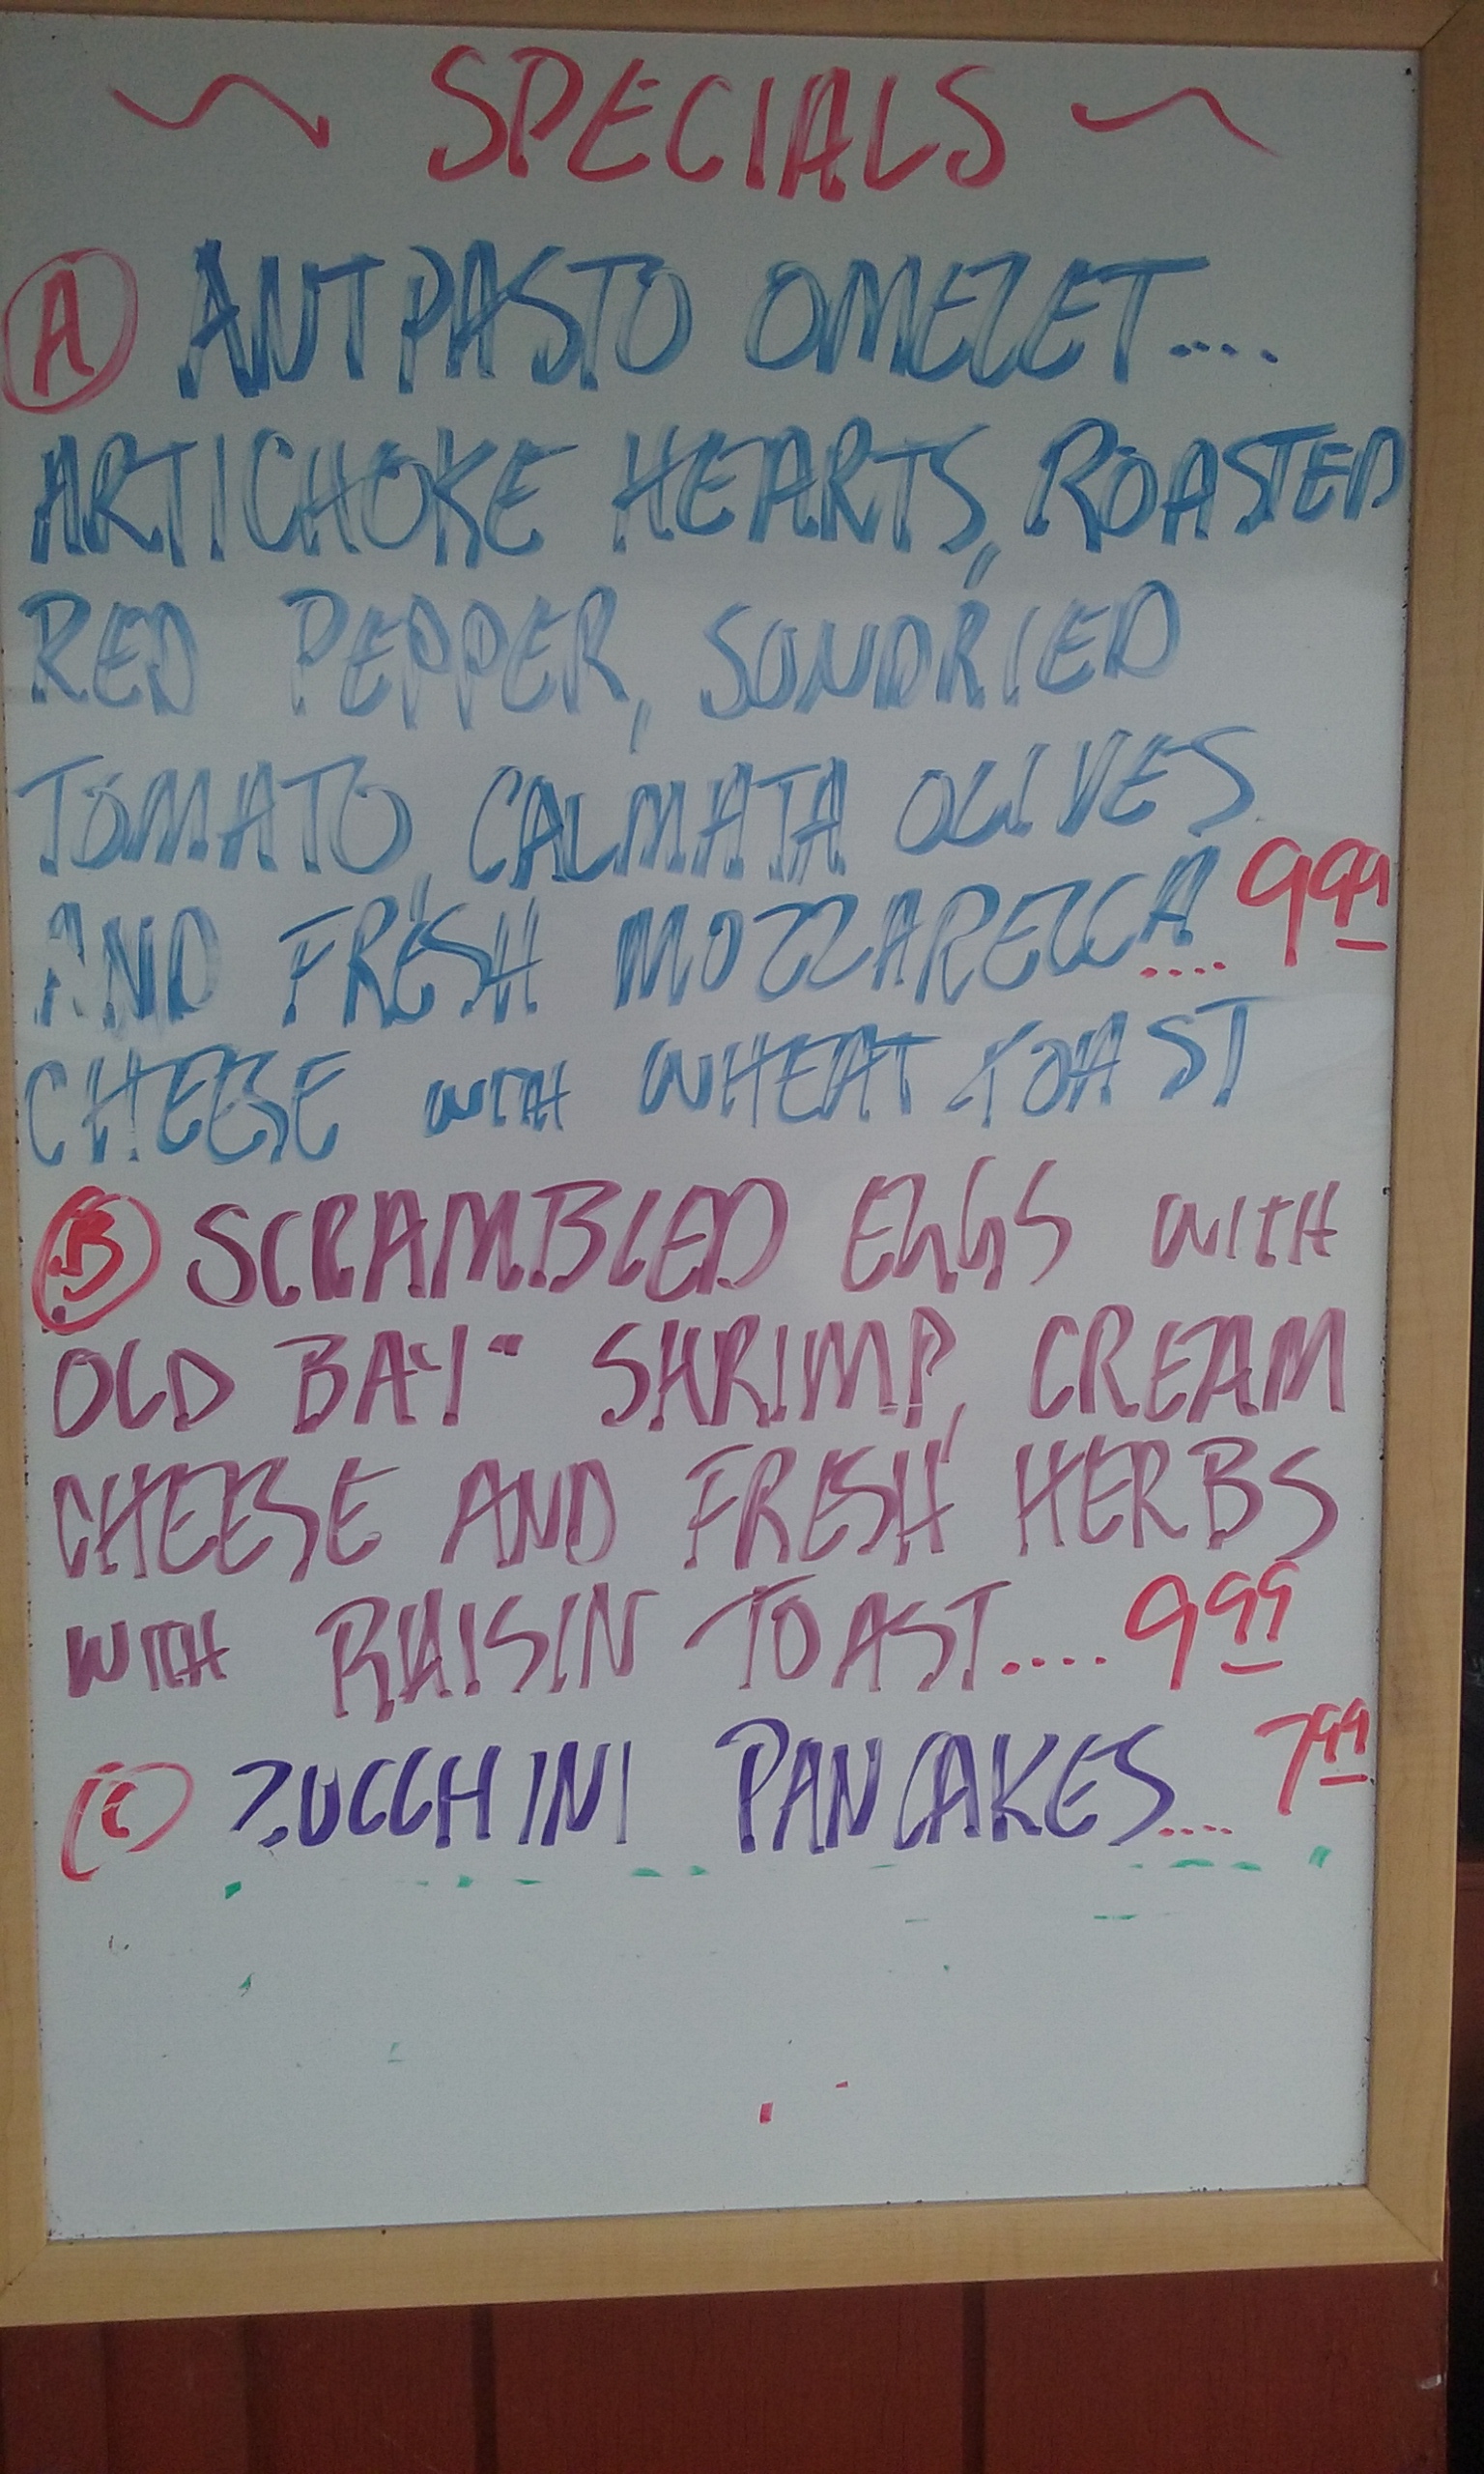 ~ SPECIALS ~
A ANTPASTO OMELET....
ARTICHOKE HEARTS, ROASTED
RED PEPPER, SUNDRIED
TOMATO, CALMATA OLIVES
AND FRESH MOZZARELLA.... 9.99
CHEESE WITH WHEAT TOAST
B SCRAMBLED EGGS WITH
OLD BAY" SHRIMP, CREAM
CHEESE AND FRESH HERBS
WITH RAISIN TOAST.... 9.99
C ZUCCHINI PANCAKES.... 7.99